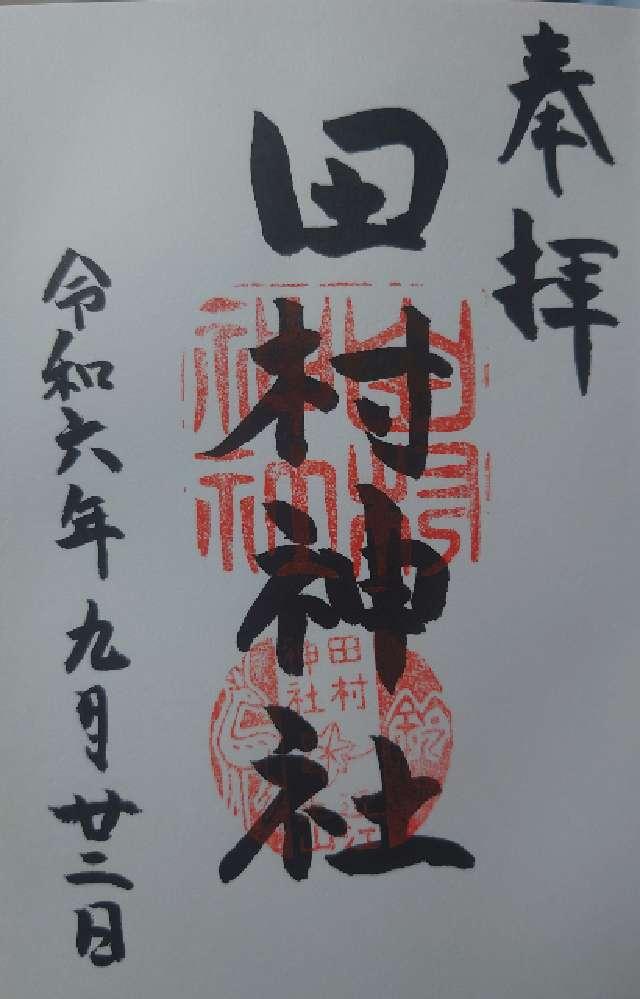 奉拝
田村神社
令和六年九月廿二日
田村
神社